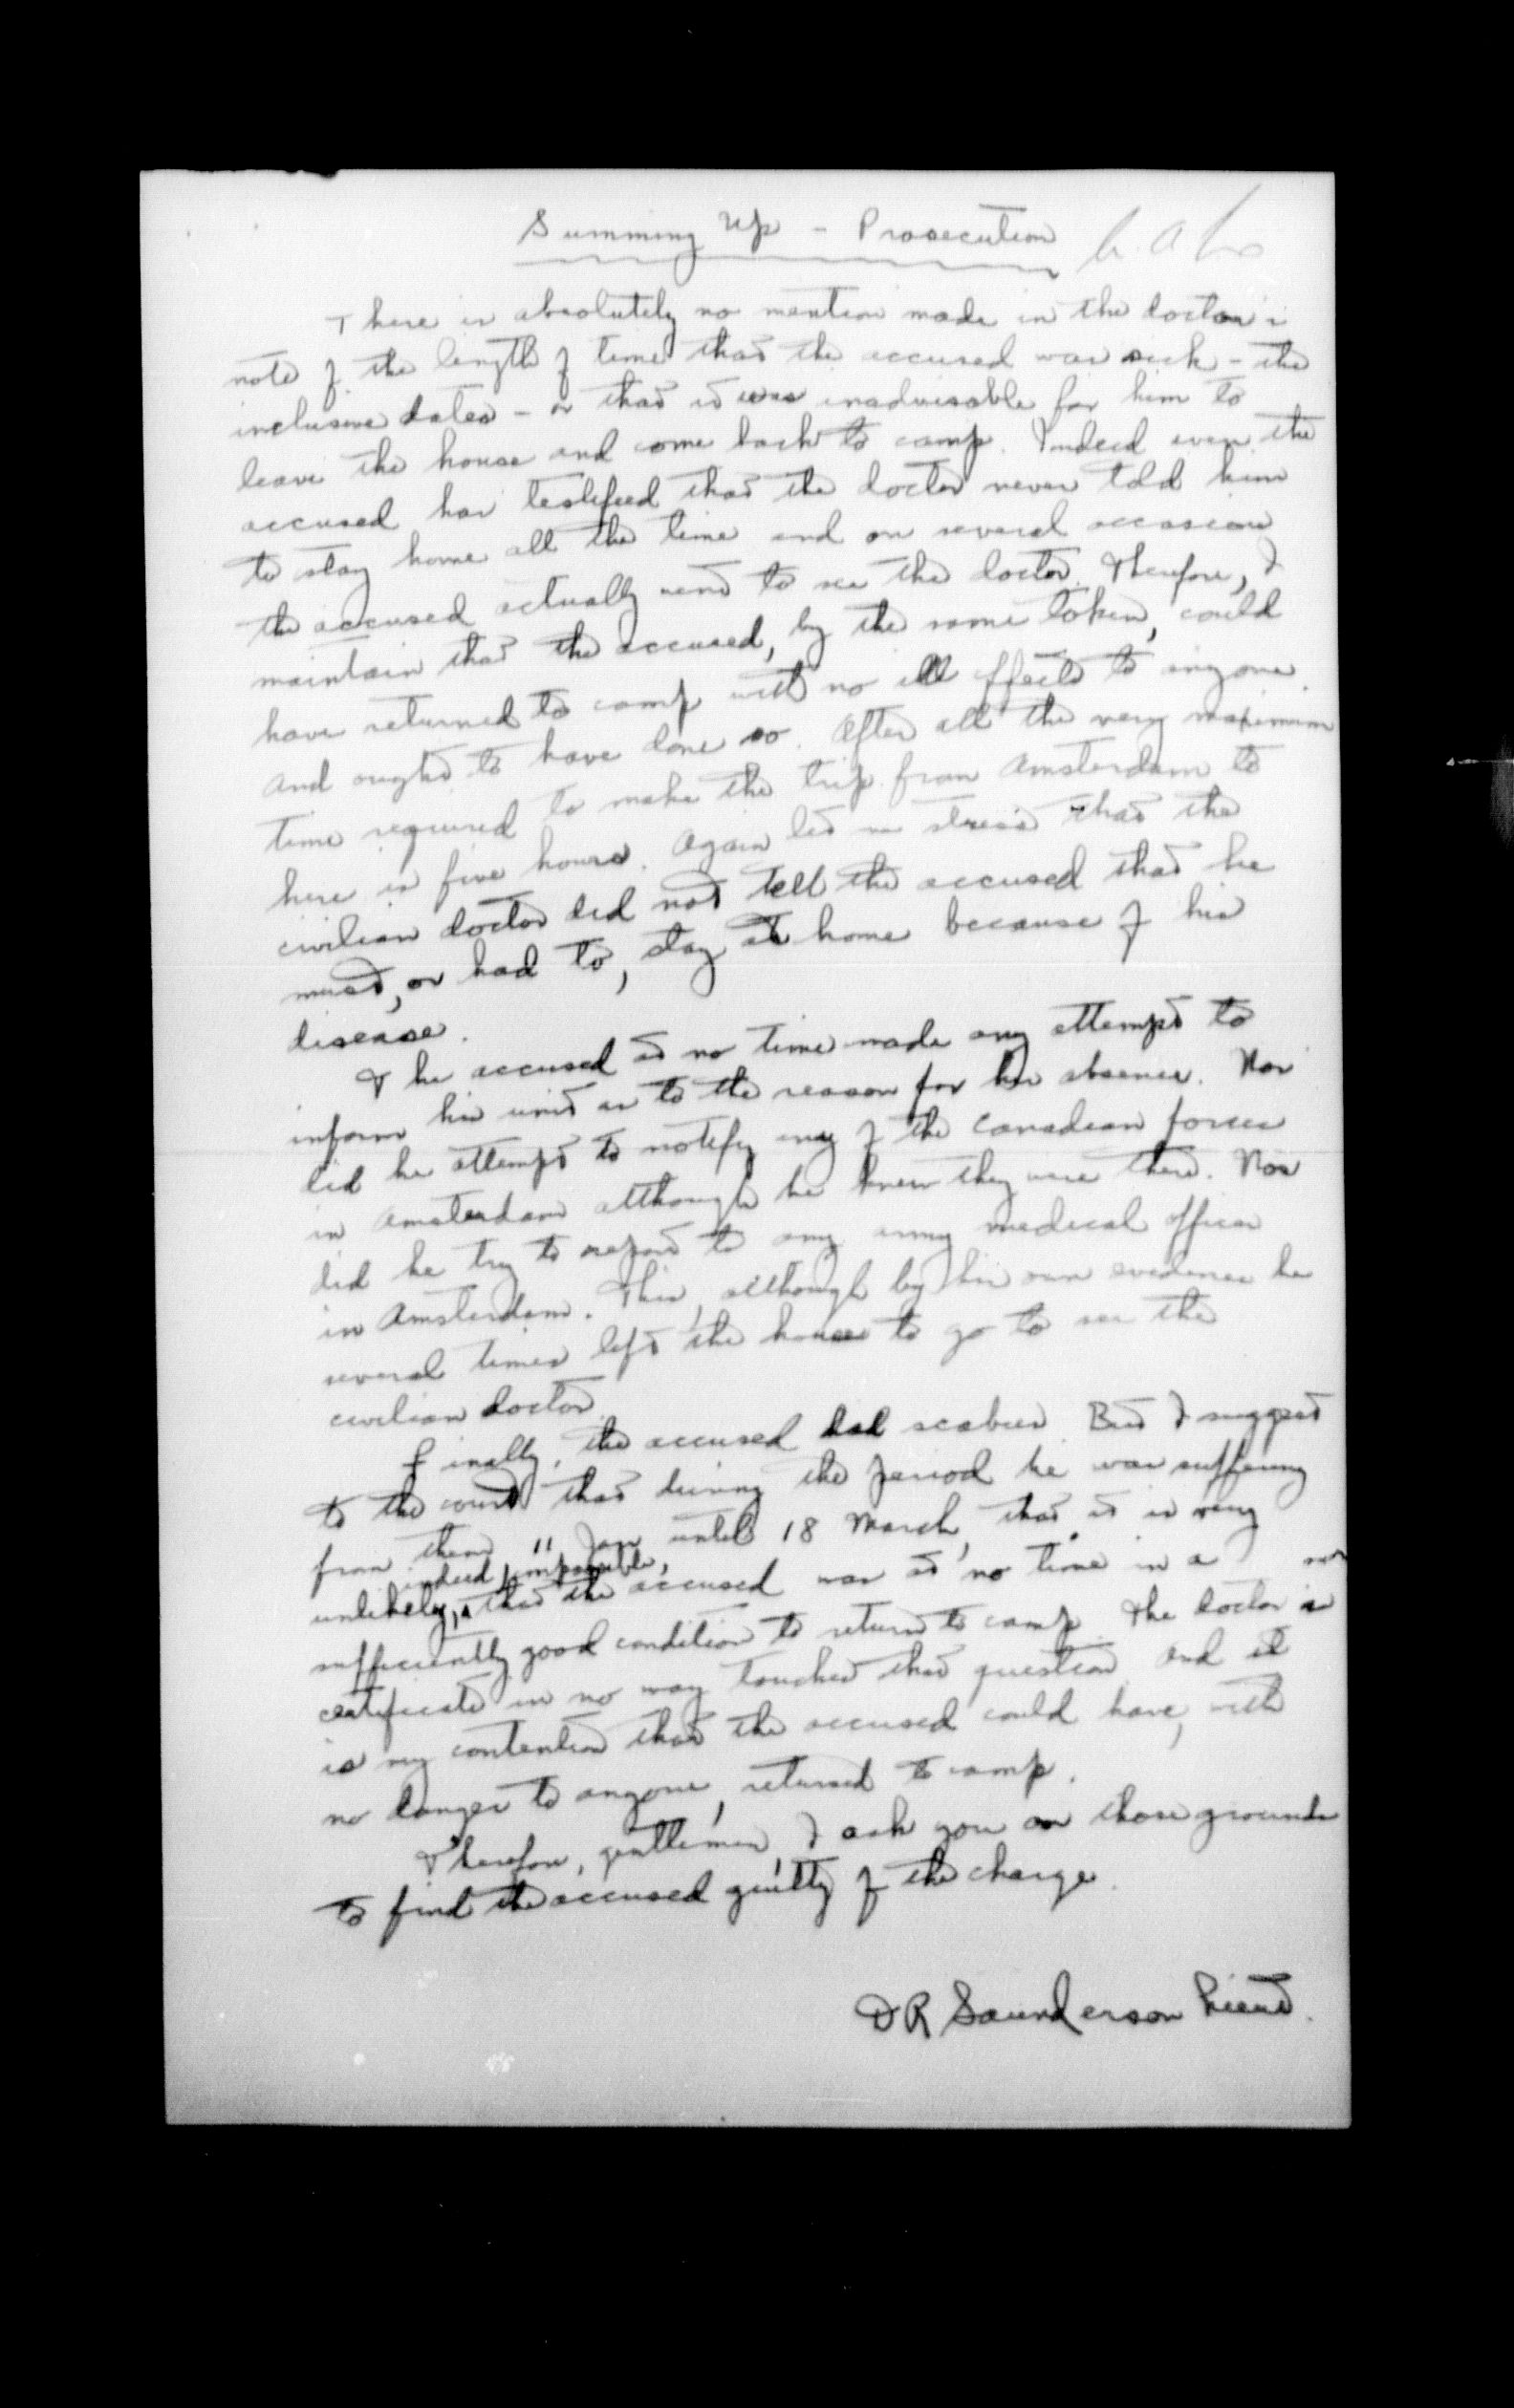 Summing Up - Prosecution
There is absolutely no mention made in the doctor's
note of the length of time that the accused was sick - the
inclusive dates - or that it was inadvisable for him to
leave the house and come back to camp. Indeed even the
accused has testified that the doctor never told him
to stay home all the time and on several occasions
the accused actually went to see the doctor. Therefore, I
maintain that the accused, by the same token, could
have returned to camp with no ill effects to anyone.
And ought to have done so. After all the very maximum
time required to make the trip from Amsterdam to
here is five hours. Again let me stress that the
civilian doctor did not tell the accused that he
must, or had to, stay at home because of his
disease.
The accused at no time made any attempt to
inform his unit as to the reason for his absence. Nor
did he attempt to notify any of the Canadian forces
in Amsterdam although he knew they were there. Nor
did he try to report to any army medical officer
in Amsterdam. This, although by his own evidence he
several times left the house to go to see the
civilian doctor.
Finally, the accused had scabies. But I suggest
to the court that during the period he was suffering
from them 11 Jan until 18 March, that it is very
unlikely, indeed impossible, that the accused was at no time in a
sufficiently good condition to return to camp. The doctor's
certificate in no way touches that question and it
is my contention that the accused could have, with
no danger to anyone, returned to camp.
Therefore, gentlemen, I ask you on those grounds
to find the accused guilty of the charge.
D R Saunderson Lieut.